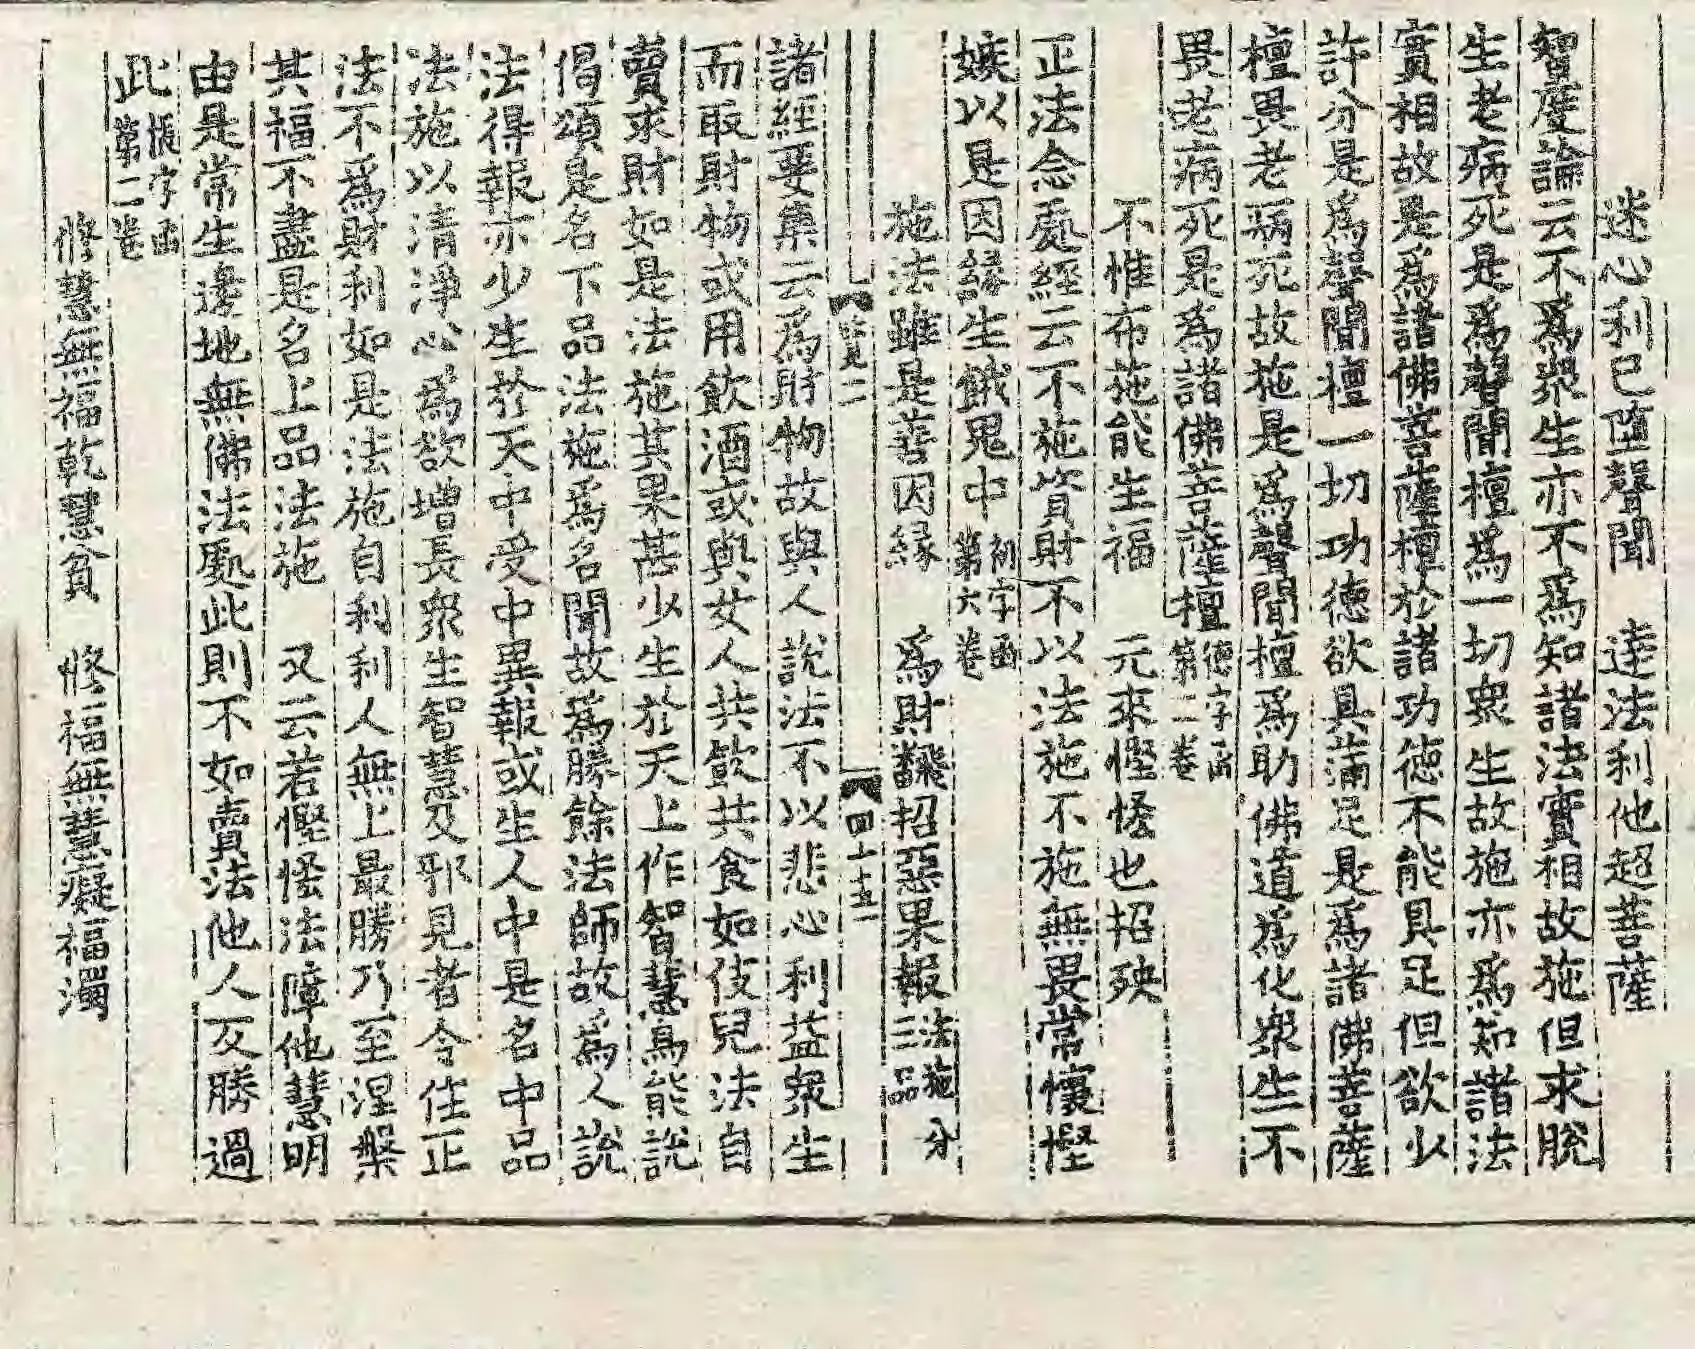 迷心利已墮聲聞　達法利他超菩薩
智度論云不爲衆生亦不爲知諸法實相故施但求脫
生老病死是爲聲聞檀爲一切衆生故施亦爲知諸法
實相故是爲諸佛菩薩檀於諸功德不能具足但欲少
許分是爲聲聞檀一切功德欲具蒲足是爲諸佛菩薩
檀畏老病死故施是爲聲聞檀爲助佛道爲化衆生不
畏老病死是爲諸佛菩薩檀德字函第二卷
不惟布施能生福　元來慳悋也招殃
正法念處經云不施資財不以法施不施無畏常懷慳
嫉以是因緣生餓鬼中初字函第六卷
施法雖是善因緣　爲財飜招惡果報法施分三品
【覽二　【四十五
諸經要集云爲財物故與人說法不以悲心利益衆生
而取財物或用飮酒或與女人共飮共食如伎兒法自
賣求財如是法施其果甚少生於天上作智慧鳥能說
偈頌是名下品法施爲名聞故爲勝餘法師故爲人說
法得報亦少生於天中受中異報或生人中是名中品
法施以清淨心爲欲增長衆生智慧及邪見者令住正
法不爲財利如是法施自利利人無上最勝乃至涅槃
其福不盡是名上品法施　又云若慳悋法障他慧明
由是常生邊地無佛法處此則不如賣法他人反勝過
此振字函第二卷
修慧無福乾慧貧　修福無慧癡福濁